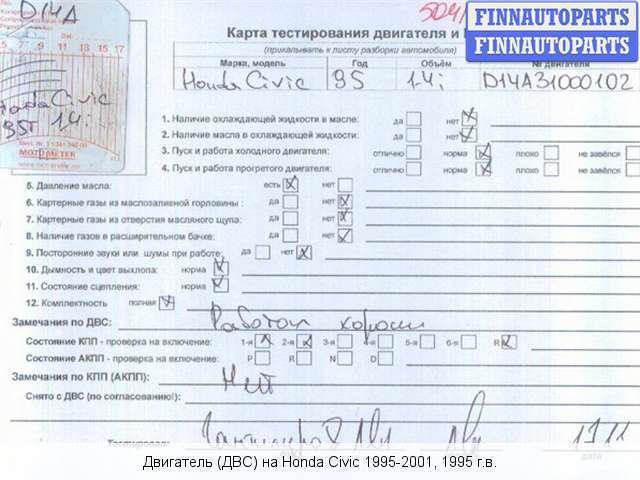 D14A
5 7 9 11 13 15 17
Honda Civic
95г 1.4i
MOTOMETER
504
FINNAUTOPARTS
FINNAUTOPARTS
Карта тестирования двигателя и
(прикалывать к листу разборки автомобиля)
Марка, модель Год Объём № двигателя
Honda Civic 95 1.4i D14A31000102
1. Наличие охлаждающей жидкости в масле: да нет
2. Наличие масла в охлаждающей жидкости: да нет
3. Пуск и работа холодного двигателя: отлично норма плохо не завёлся
4. Пуск и работа прогретого двигателя: отлично норма плохо не завёлся
5. Давление масла: есть нет
6. Картерные газы из маслозаливной горловины: да нет
7. Картерные газы из отверстия масляного щупа: да нет
8. Наличие газов в расширительном бачке: да нет
9. Посторонние звуки или шумы при работе: да нет
10. Дымность и цвет выхлопа: норма
11. Состояние сцепления: норма
12. Комплектность полная
Замечания по ДВС: Работал хорошо
Состояние КПП - проверка на включение: 1-я 2-я 3-я 4-я 5-я 6-я R
Состояние АКПП - проверка на включение: P R N D
Замечания по КПП (АКПП): Нет
Снято с ДВС (по согласованию!):
Тестировал:
дата
Двигатель (ДВС) на Honda Civic 1995-2001, 1995 г.в.